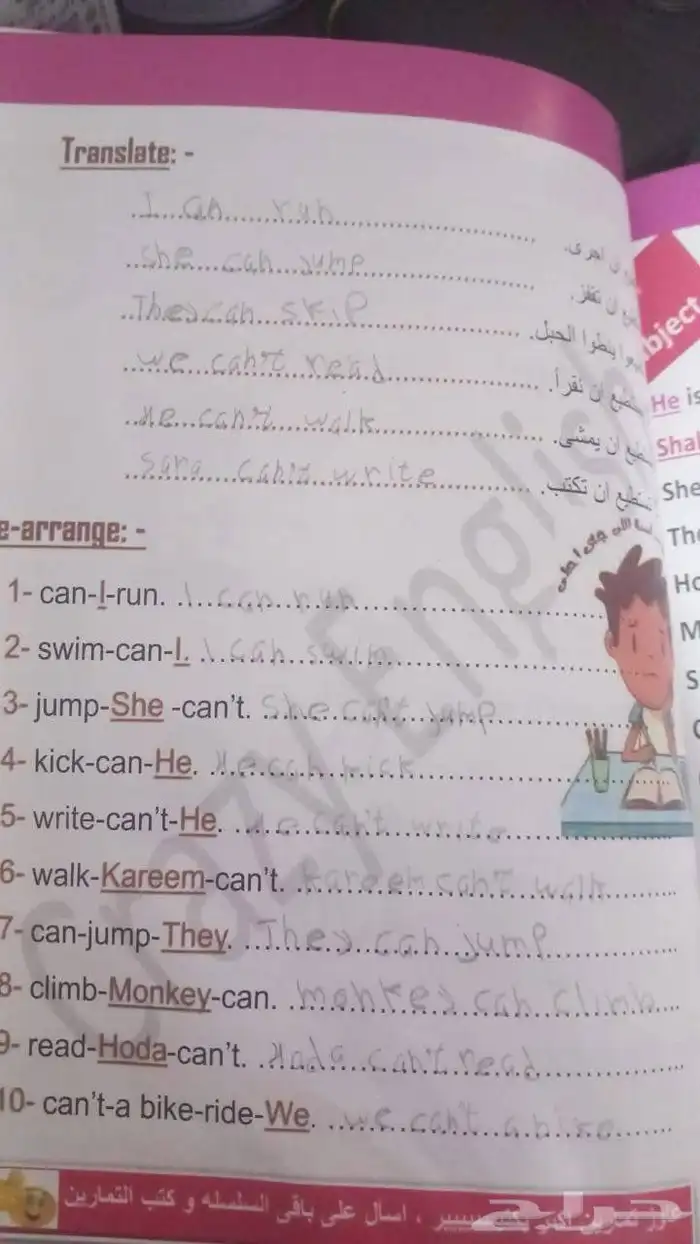 Translate: -
I can run ان اجرى.
she can jump ان تقفز.
They can skip ينطوا الحبل.
we can't read ان نقرأ.
He can't walk ان يمشى.
Sara can't write تستطيع ان تكتب.
e-arrange: -
1- can-I-run. I can run
2- swim-can-I. I can swim
3- jump-She -can't. She can't jump
4- kick-can-He. He can kick
5- write-can't-He. He can't write
6- walk-Kareem-can't. Kareem can't walk
7- can-jump-They. They can jump
8- climb-Monkey-can. monkey can climb
9- read-Hoda-can't. Hoda can't read
10- can't-a bike-ride-We. we can't a bike
عاوز تمارين اكتر ، اسال على باقى السلسله و كتب التمارين
Crazy English
bject
He is
She